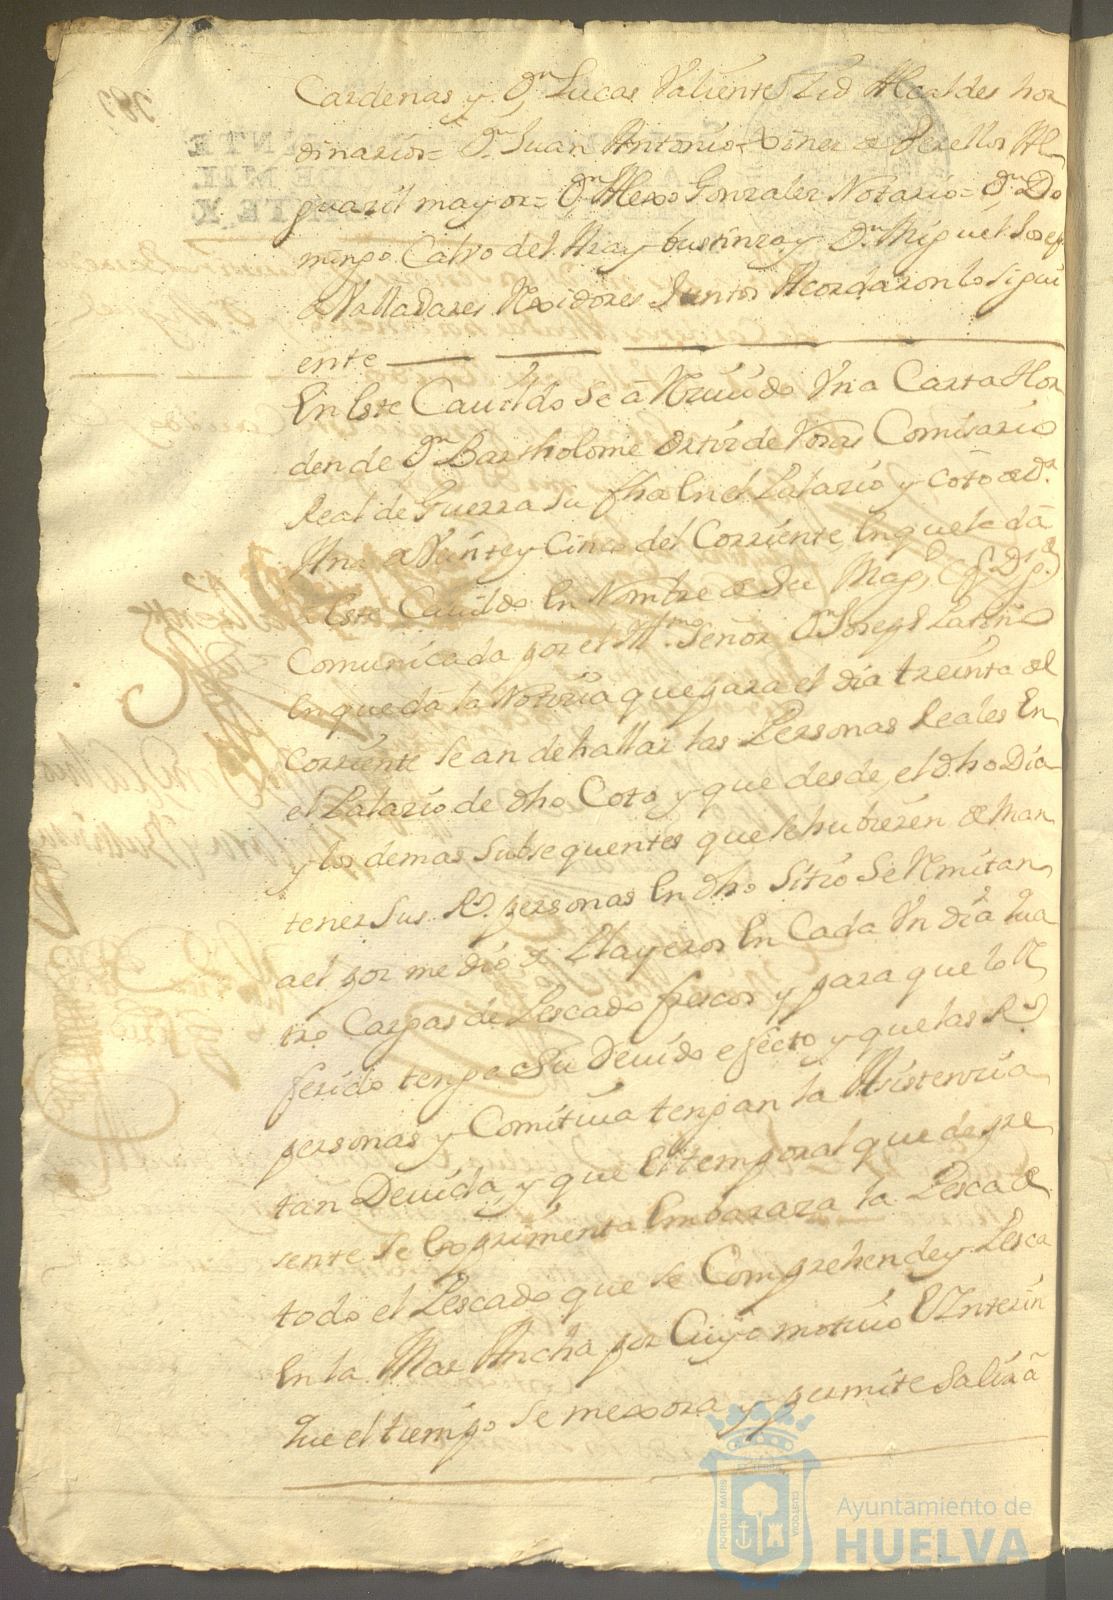 Cardenas y Dn Lucas Valiente Zid Alcaldes hor
dinarios= Dn Juan Antonio Xinez de Perellos Al
guazil mayor= Dn Alexo Gonzalez Notario= Dn Do
mingo Calvo del Hray bustinza y Dn Miguel Joseph
Valladares Rexidores Juntos Acordaron lo sigui
ente
En Este Cavildo Se a Rezivido Vna Carta Hor
den de Dn Bartholome Ortiz de Comisario
Real de Guerra Su fha En el Palazio y Coto de Da
Ana a Veinte y Cinco del Corriente, En que le da
a Este Cavildo En Nombre de Su Magd
Comunicada por el Illmo Señor Dn Joseph Patiño
En que da la Notizia que para el dia treinta del
Corriente Se an de hallar las Personas Reales En
el Palazio de dho Coto y que desde el dho Dia
y los demas Subsequentes que Se hubieren de Man
tener Sus Rs personas En dho Sitio Se Remitan
a el por medio de Playeros En Cada Vn dia qua
tro Cargas de Pescado frescos y para que lo Re
ferido tenga Su Devido efecto y que las Rs
personas y Comitiva tengan la Asistenzia
tan Devida, y que El temporal que de pre
sente Se Exprimenta Embaraza la Pesca de
todo el Pescado que Se Comprehende y Pesca
En la Mar Ancha por Cuyo motivo E Ynterin
que el tiempo Se mexora y permite Salir a
Ayuntamiento de
HUELVA
PORTUS MARIS
CUSTODIA